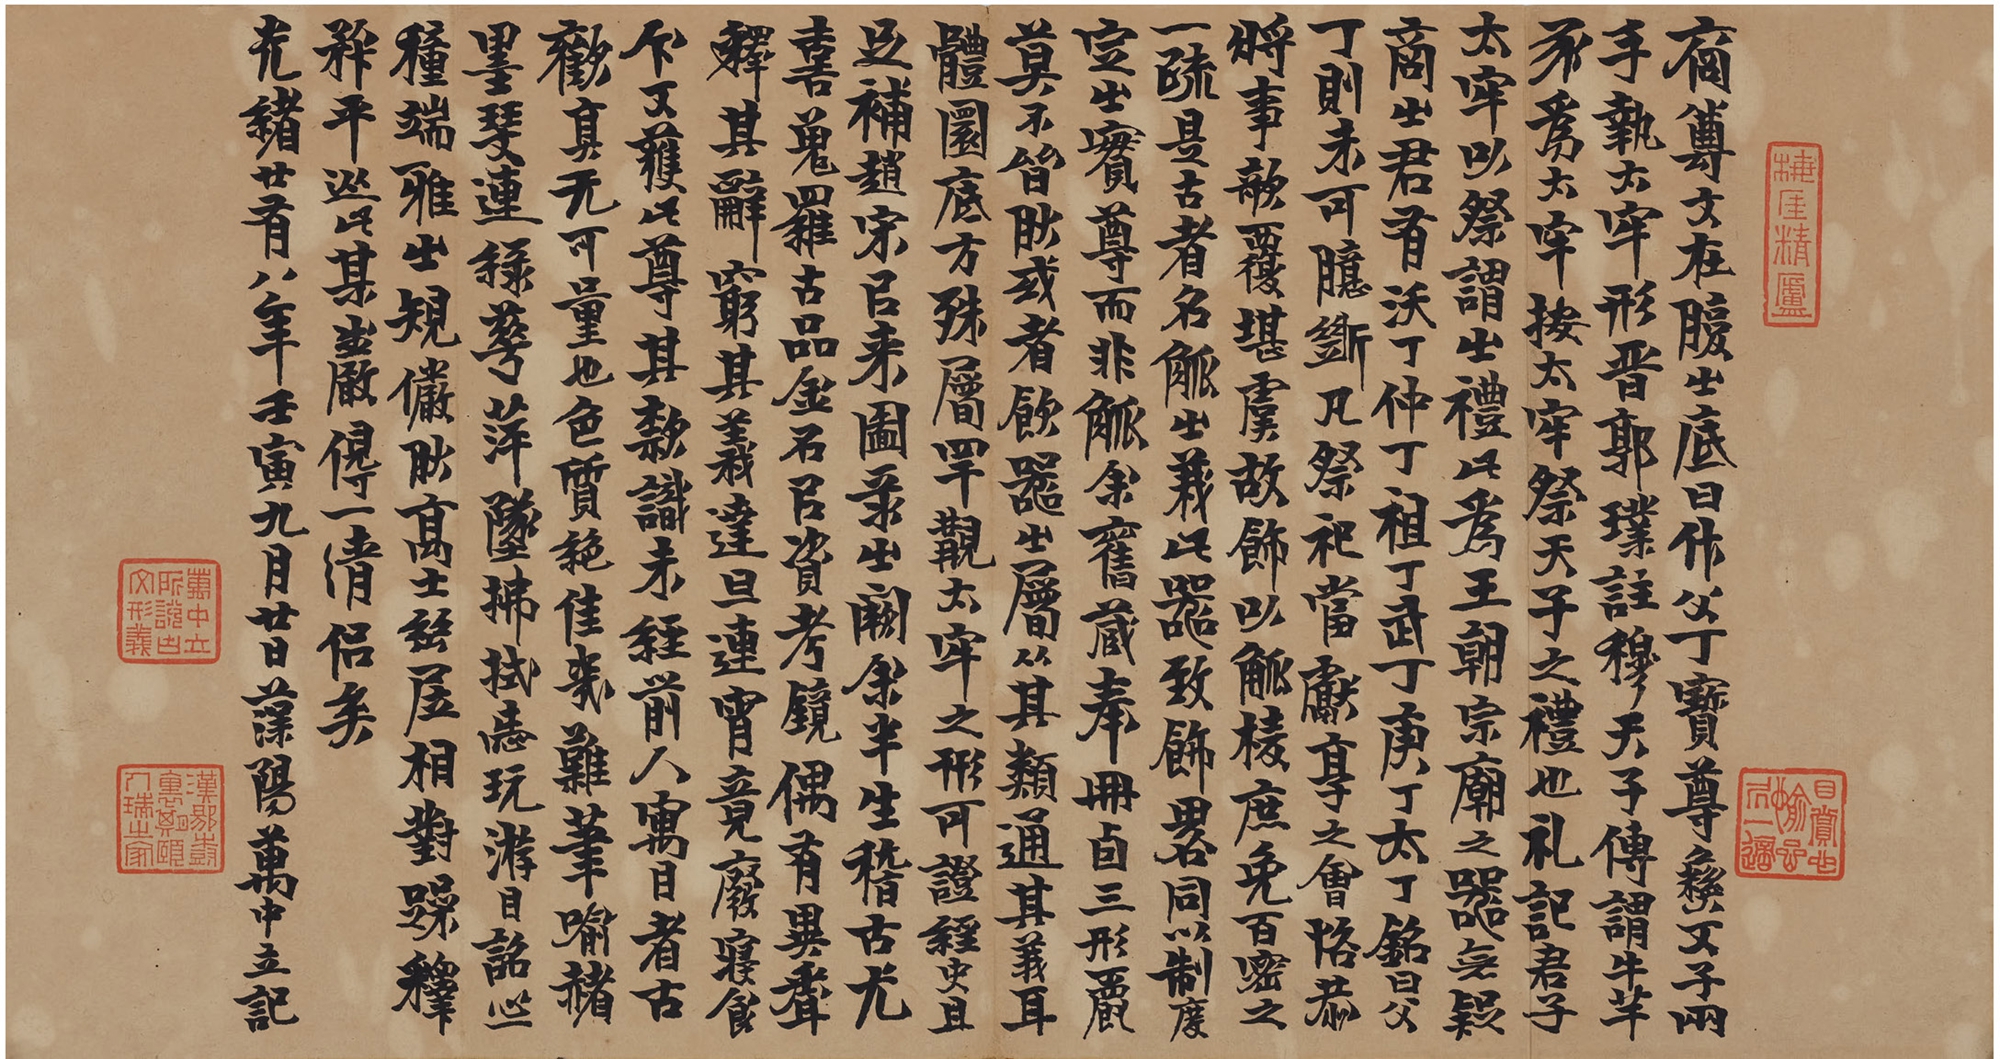 商尊文在腹之底曰作父丁寶尊彝又子兩
手執太牢形晉郭璞註穆天子傳謂牛羊
豕為太牢按太牢祭天子之禮也礼記君子
太牢以祭謂之禮此為王朝宗廟之器無疑
商之君有沃丁仲丁祖丁武丁庚丁太丁銘曰父
丁則未可臆斷凡祭祀當獻享之會恪恭
將事歌覆堪虞故飾以觚棱庶免百密之
一疏是古者名觚之義此器致飾畧同以制度
定之實尊而非觚余舊藏奉冊卣三形酈
莫不晉肰或者飲器之層从其類通其義耳
體圜底方殊層罕覯太牢之形可證經史且
足補趙宋㠯来圖录之闕余半生稽古尤
喜蒐羅古品金石㠯資考鏡偶有異聱
釋其辭窮其義達旦連宵竟廢寢食
尒又獲此尊其款識未經前人寓目者古
歡真无可量也色質絶佳㡬難筆喻赭
墨斐連綠萼萍墜拂拭忘玩游目詻㳂
穜端雅之規儼肰高士茲居相對躁釋
矜平㳂此某盇嚴㝵一清侶矣
光緒廿有八年壬寅九月廿日藻陽萬中立記
梅厓精廬
萬中立
所說古
文形義